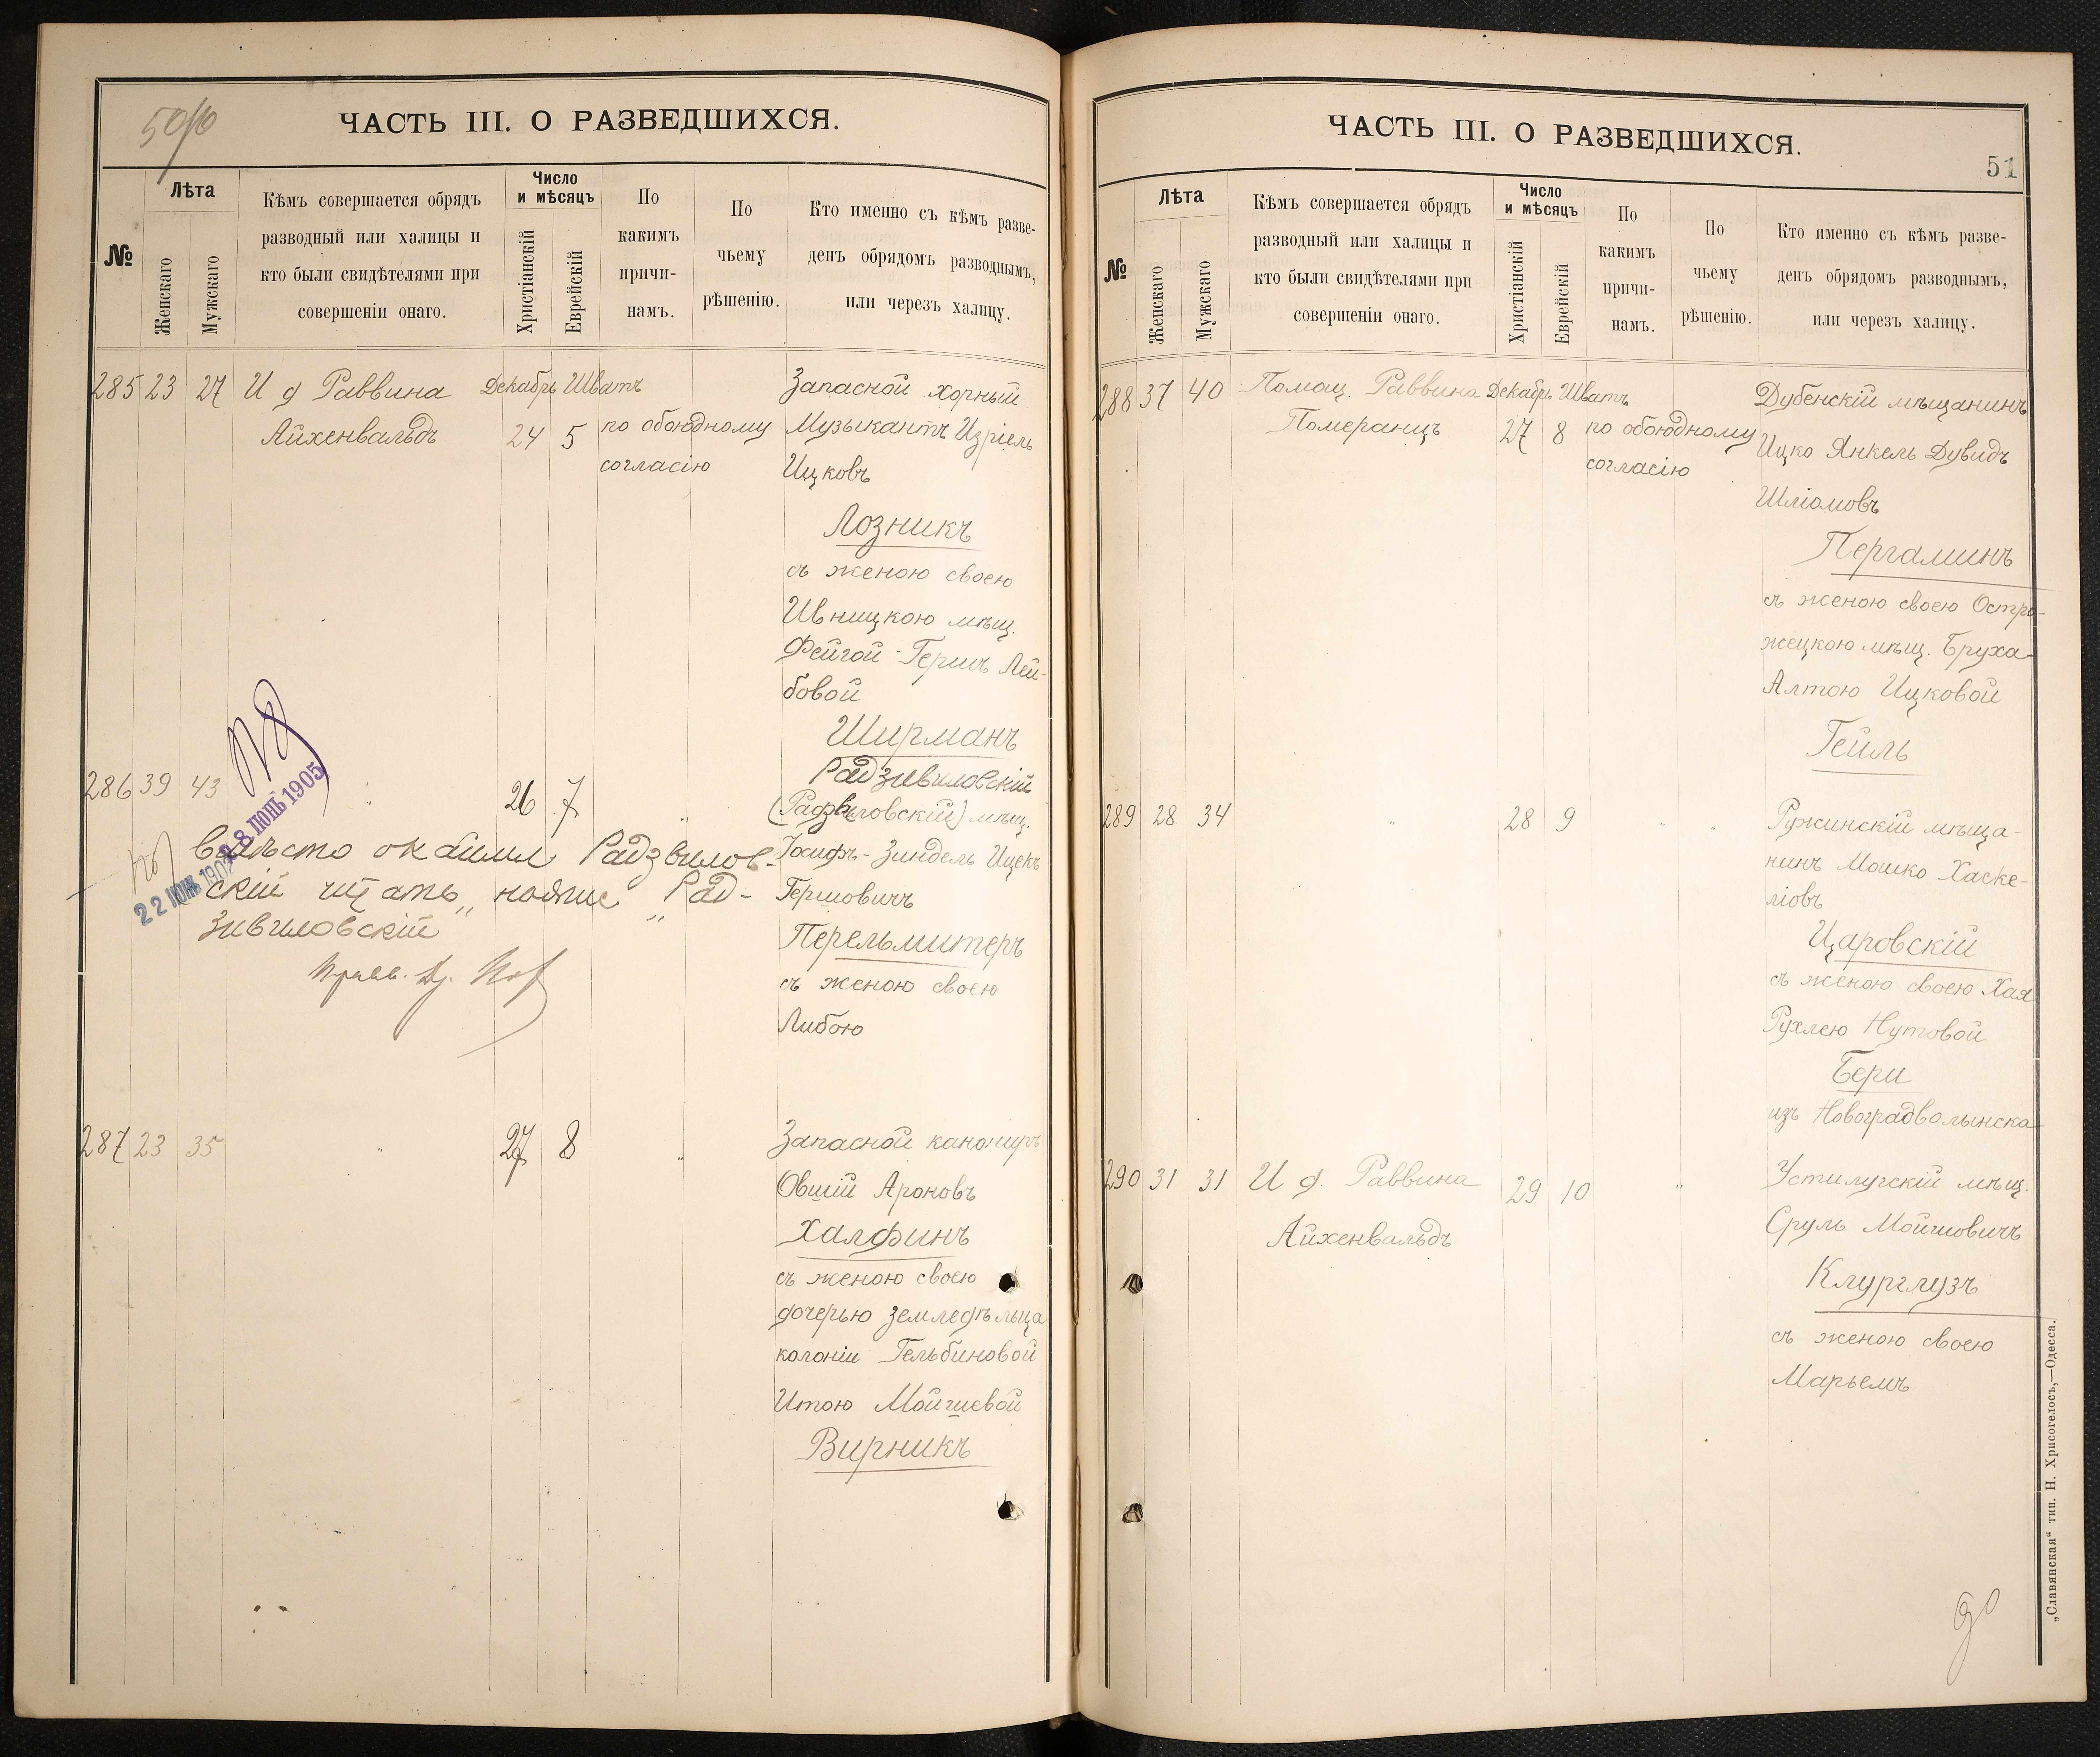 50/10
ЧАСТЬ III. О РАЗВЕДШИХСЯ.
№
Лѣта
Женскаго
Мужскаго
Кѣмъ совершается обрядъ
разводный или халицы и
кто были свидѣтелями при
совершеніи онаго.
Число
и мѣсяцъ
Христіанскій
Еврейскій
По
какимъ
причи-
намъ.
По
чьему
рѣшенію.
Кто именно съ кѣмъ разве-
денъ обрядомъ разводнымъ,
или черезъ халицу.
285 23 27 И д Раввина Декабрь Шватъ
Айхенвальдъ 24 5 по обоюдному
согласію
Запасной хорный
Музыкантъ Изріель
Ицковъ
Лозникъ
съ женою своею
Ивницкою мѣщ.
Фейгой-Геришъ Лей-
бовой
Ширманъ
286 39 43 " 26 7 "
Радзивиловскій
(Радзвиловскій) мѣщ.
Іосифъ-Зиндель Ицекъ
Гершовичъ
Перельмитеръ
съ женою своею
Либою
28 ІЮНЬ 1905
22 ІЮН 190
вмѣсто
Радзвилов-
скій читать
Рад-
зивиловскій
287 23 35 " 27 8 "
Запасной канониръ
Овшій Ароновъ
Халфинъ
съ женою своею
дочерью земледѣльца
колоніи Гельбиновой
Итою Мойшевой
Вирникъ
ЧАСТЬ III. О РАЗВЕДШИХСЯ.
51
№
Лѣта
Женскаго
Мужскаго
Кѣмъ совершается обрядъ
разводный или халицы и
кто были свидѣтелями при
совершеніи онаго.
Число
и мѣсяцъ
Христіанскій
Еврейскій
По
какимъ
причи-
намъ.
По
чьему
рѣшенію.
Кто именно съ кѣмъ разве-
денъ обрядомъ разводнымъ,
или черезъ халицу.
288 37 40 Помощ. Раввина Декабрь Шватъ
Померанцъ 27 8 по обоюдному
согласію
Дубенскій мѣщанинъ
Ицко Янкель Дувидъ
Шліомовъ
Пергаминъ
съ женою своею Остро-
жецкою мѣщ. Бруха-
Алтою Ицковой
Гейль
289 28 34 " 28 9 " "
Ружинскій мѣща-
нинъ Мошко Хаске-
ліовъ
Царовскій
съ женою своею Хая
Рухлею Нутовой
Бери
изъ Новоградволынска
290 31 31 И д. Раввина 29 10 "
Айхенвальдъ
Устилугскій мѣщ.
Сруль Мойшовичъ
Клурглузъ
съ женою своею
Марьемъ
„Славянская“ тип. Н. Хрисогелосъ,—Одесса.